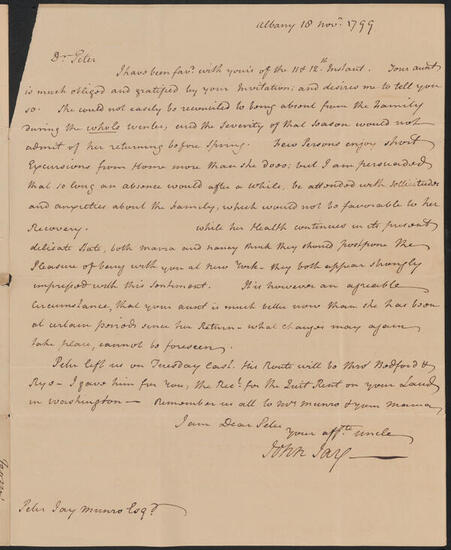 Albany 18 Novr. 1799
Dr. Peter
I have been favd. with yours of the 11 & 12th. Instant. Your aunt
is much obliged and gratified by your Invitation; and desires me to tell you
so. She could not easily be reconciled to being absent from the Family
during the whole winter, and the Severity of that Season would not
admit of her returning before Spring. Few Persons enjoy short
Excursions from Home more than she does; but I am persuaded
that so long an absence would after a while, be attended with sollicitudes
and anxieties about the Family, which would not be favorable to her
Recovery. while her Health continues in its present
delicate State, both maria and nancy think they should postpone the
Pleasure of being with you at new York - they both appear strongly
impressed with this Sentiment. It is however an agreable
Circumstance, that your aunt is much better now than she has been
at certain periods since her Return - what changes may again
take place, cannot be foreseen.
Peter left us on Tuesday last. His Route will be thro' Bedford &
Rye - I gave him for you, the Rect. for the Quit Rent on your Land
in Washington - Remember us all to Mrs. Munro & your mama
I am Dear Peter
your affte. uncle
John Jay
Peter Jay Munro Esqr.